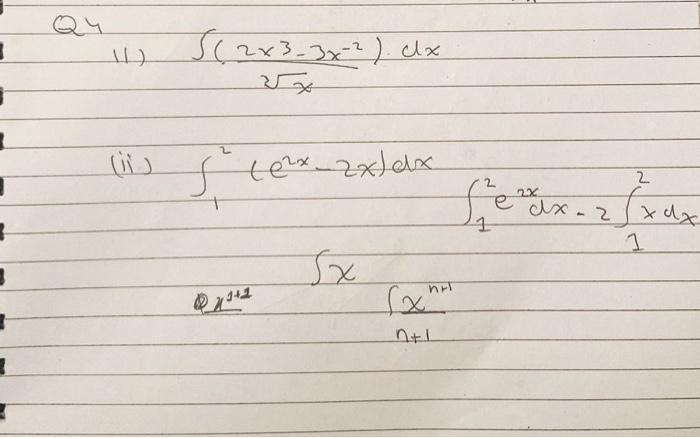 Q4
(i) ∫(2x3-3x⁻²).dx
²√x
(ii) ∫₁² (e²ˣ-2x)dx
∫₁² e²ˣdx-2∫₁² x dx
∫x
x¹⁺¹
∫xⁿ⁺¹
n+1